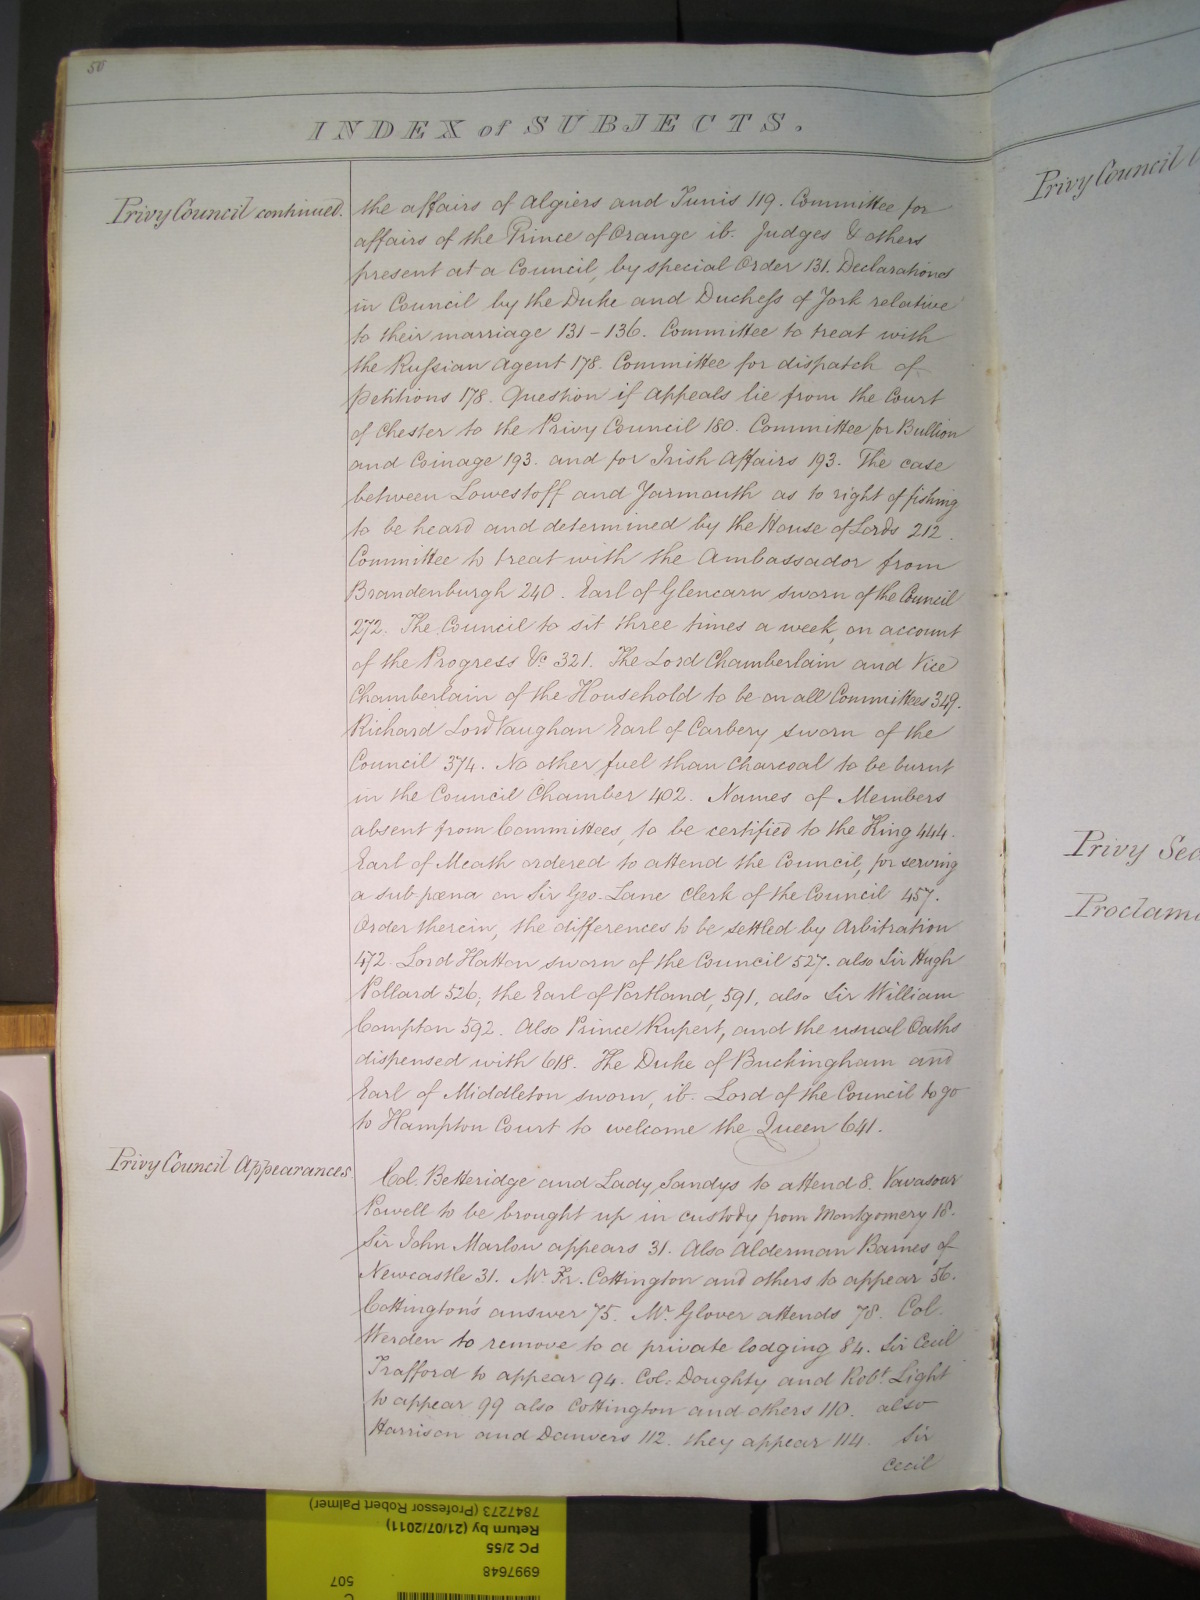 50
INDEX of SUBJECTS.
Privy Council continued.
the affairs of Algiers and Tunis 119. Committee for
affairs of the Prince of Orange ib. Judges & others
present at a Council, by special Order 131. Declarations
in Council by the Duke and Duchess of York relative
to their marriage 131-136. Committee to treat with
the Russian Agent 178. Committee for dispatch of
petitions 178. Question if appeals lie from the Court
of Chester to the Privy Council 180. Committee for Bullion
and Coinage 193. and for Irish Affairs 193. The case
between Lowestoff and Yarmouth as to right of fishing
to be heard and determined by the House of Lords 212.
Committee to treat with the Ambassador from
Brandenburgh 240. Earl of Glencarn sworn of the Council
272. The Council to sit three times a week, on account
of the Progress &c 321. The Lord Chamberlain and Vice
Chamberlain of the Household to be on all Committees 349.
Richard Lord Vaughan Earl of Carbery sworn of the
Council 374. No other fuel than Charcoal to be burnt
in the Council Chamber 402. Names of Members
absent from Committees, to be certified to the King 444.
Earl of Meath ordered to attend the Council, for serving
a sub pœna on Sir Geo. Lane Clerk of the Council 457.
Order therein, the differences to be settled by Arbitration
472. Lord Hatton sworn of the Council 527. also Sir Hugh
Pollard 526, the Earl of Portland, 591, also Sir William
Compton 592. Also Prince Rupert, and the usual Oaths
dispensed with 618. The Duke of Buckingham and
Earl of Middleton sworn, ib. Lord of the Council to go
to Hampton Court to welcome the Queen 641.
Privy Council Appearances.
Col. Betteridge and Lady Sandys to attend 8. Vavasour
Powell to be brought up in custody from Montgomery 18.
Sir John Marlow appears 31. Also Alderman Barnes of
Newcastle 31. Mr Fr. Cottington and others to appear 56.
Cottington's answer 75. Mr Glover attends 78. Col.
Werden to remove to a private lodging 84. Sir Cecil
Trafford to appear 94. Col: Doughty and Robt Light
to appear 99 also Cottington and others 110. also
Harrison and Danvers 112. they appear 114. Sir
Cecil
Privy Council
Privy Sea
Proclama
507
6997648
PC 2/55
Return by (21/07/2011)
7847273 (Professor Robert Palmer)